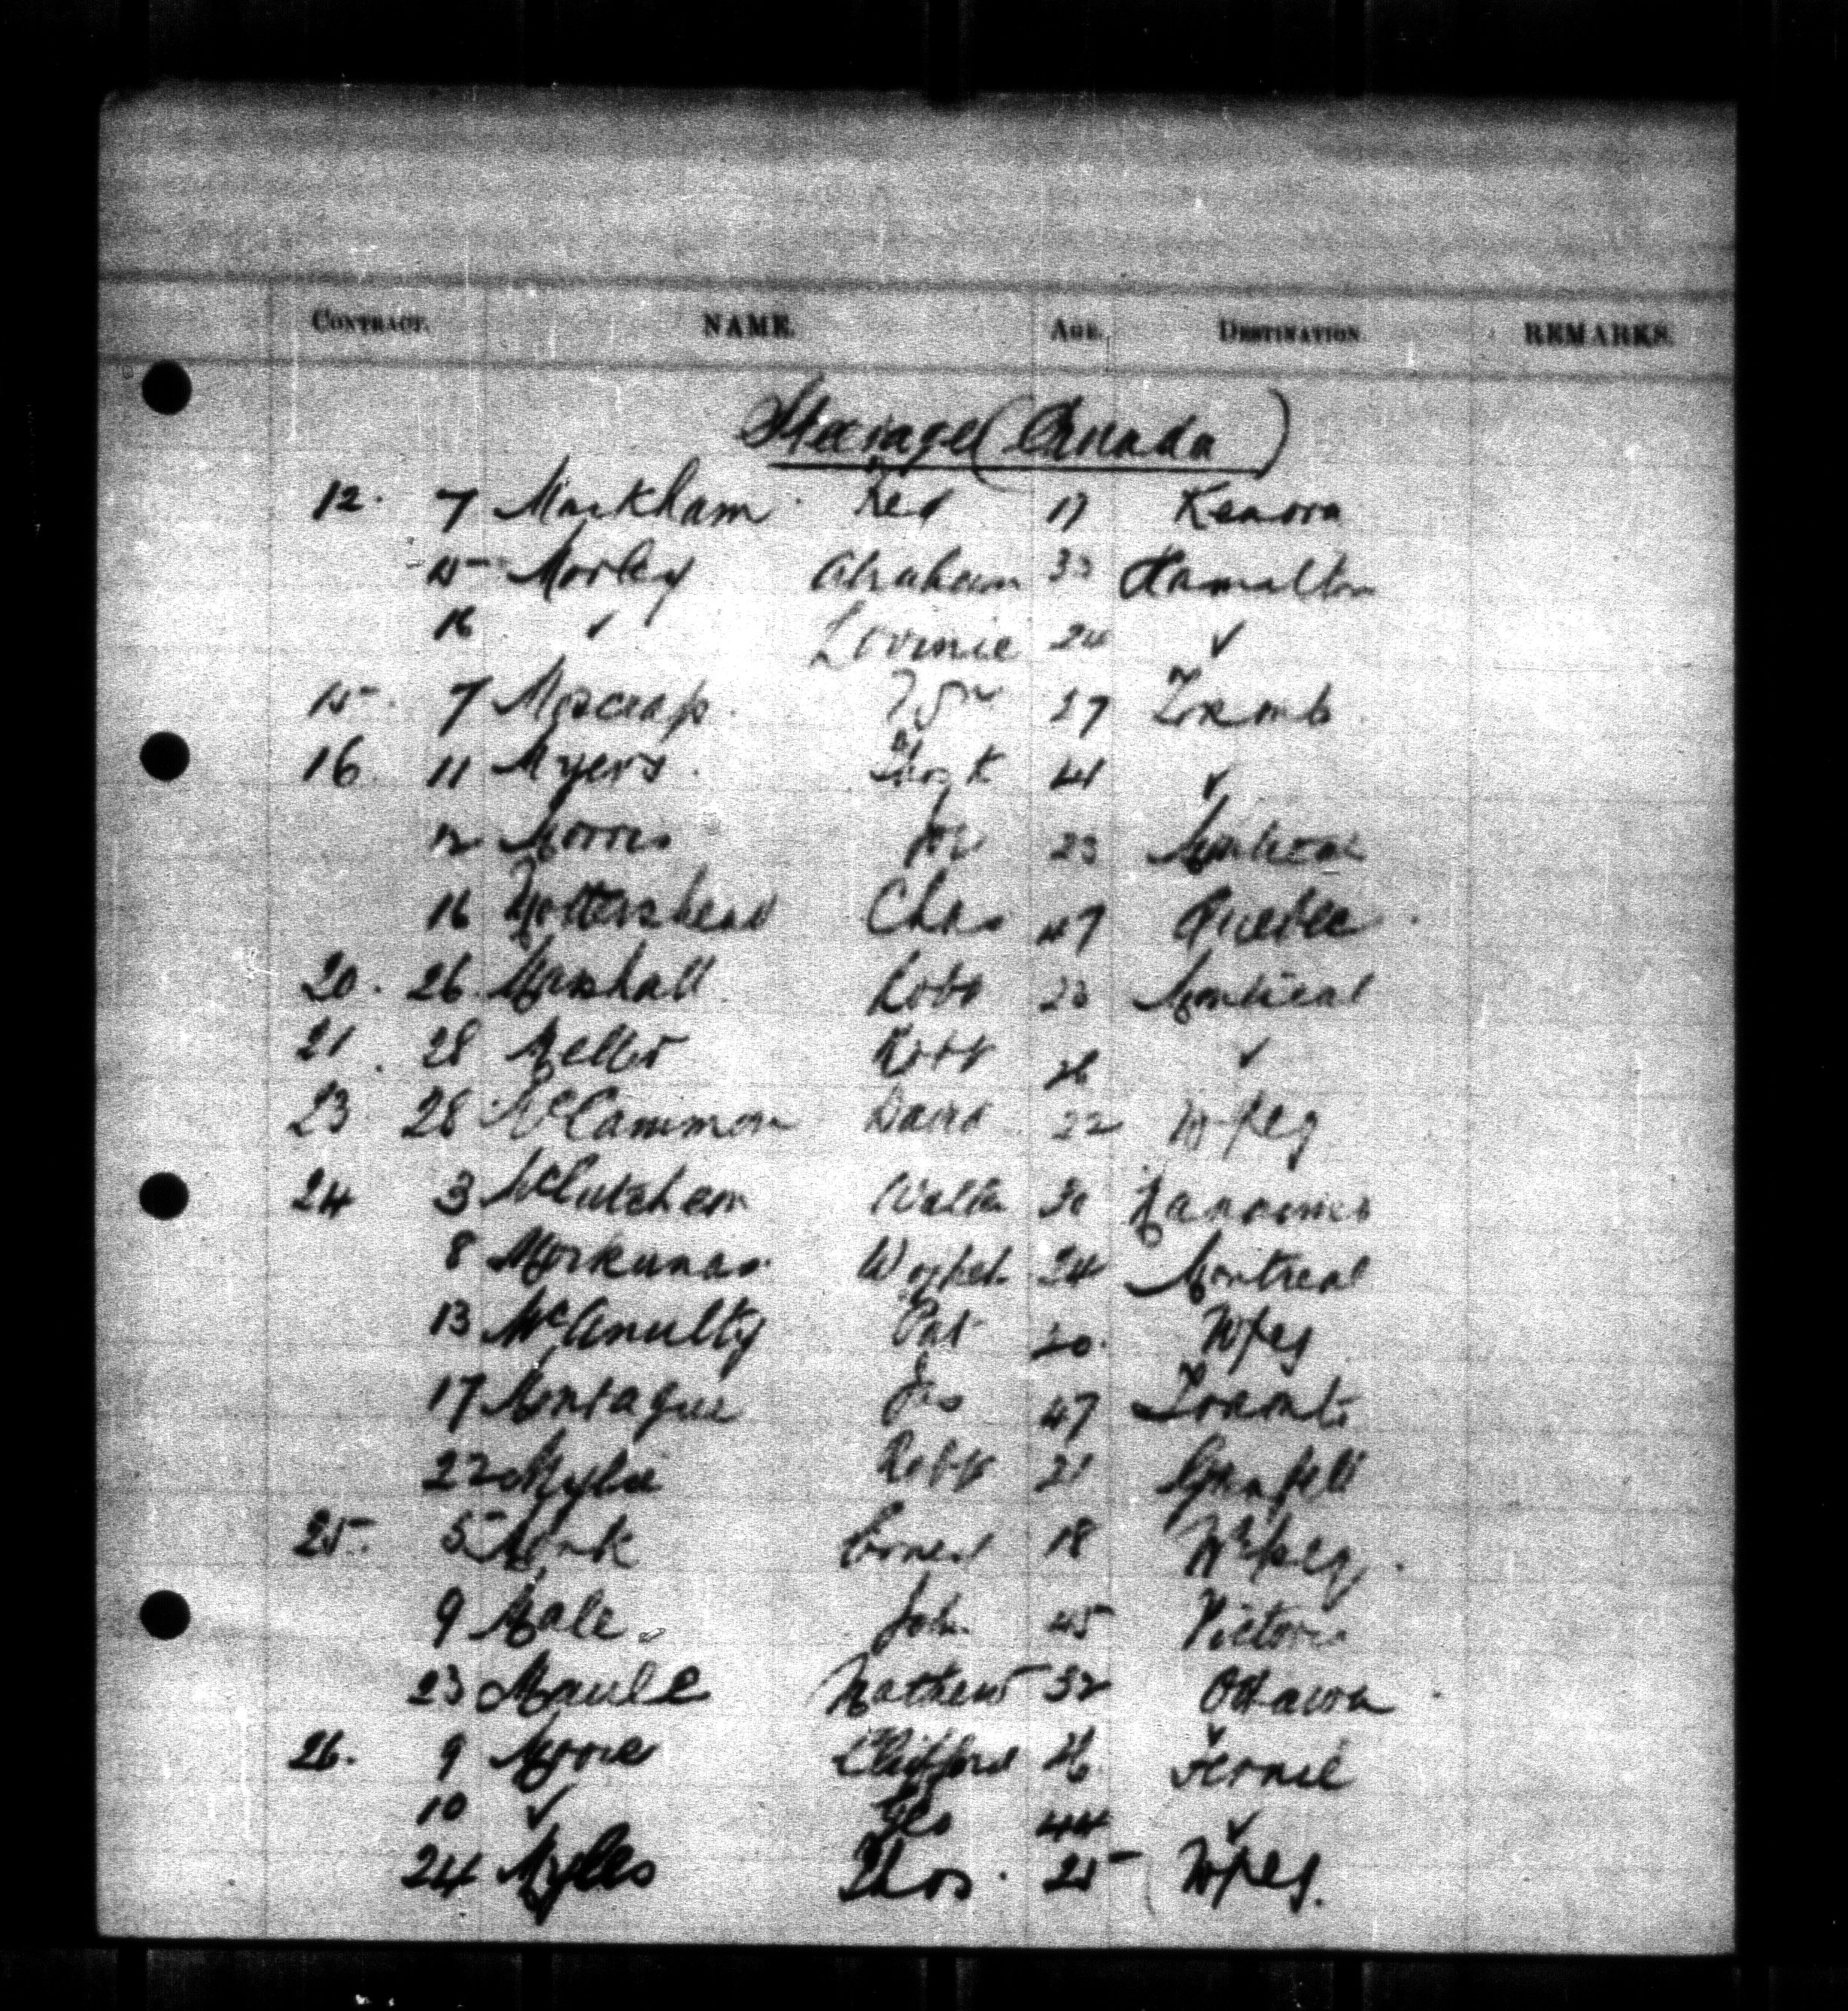 CONTRACT. NAME. AGE. DESTINATION. REMARKS.
Steerage (Canada)
12. 7 Markham Fred 17 Kenora
15 Morley Abraham 35 Hamilton
16 ✓ Lovinie 24 ✓
15. 7 Moscrap 27 Toronto
16. 11 Myers 41 ✓
12 Morris Joe 23 Montreal
16 Mottershead Chas 47 Quebec
20. 26 Marshall Robt 23 Montreal
21. 28 Mellor Robt 26 ✓
23. 28 McCammon David 22 W-peg
24 3 McCutcheon Walter
8 Morkunas 24 Montreal
13 McAnulty Pat 20. Wpeg
17 Montague Jas 47 Toronto
22 Mylie Robt 21 Grenfell
25. 5 Monk Ernest 18 W'peg.
9 Male John 45 Victoria
23 Maule Mathew 32 Ottawa
26. 9 Moore Clifford 26 Fernie
10 ✓ Geo 44 ✓
24 Myles Thos. 25 Wpeg.